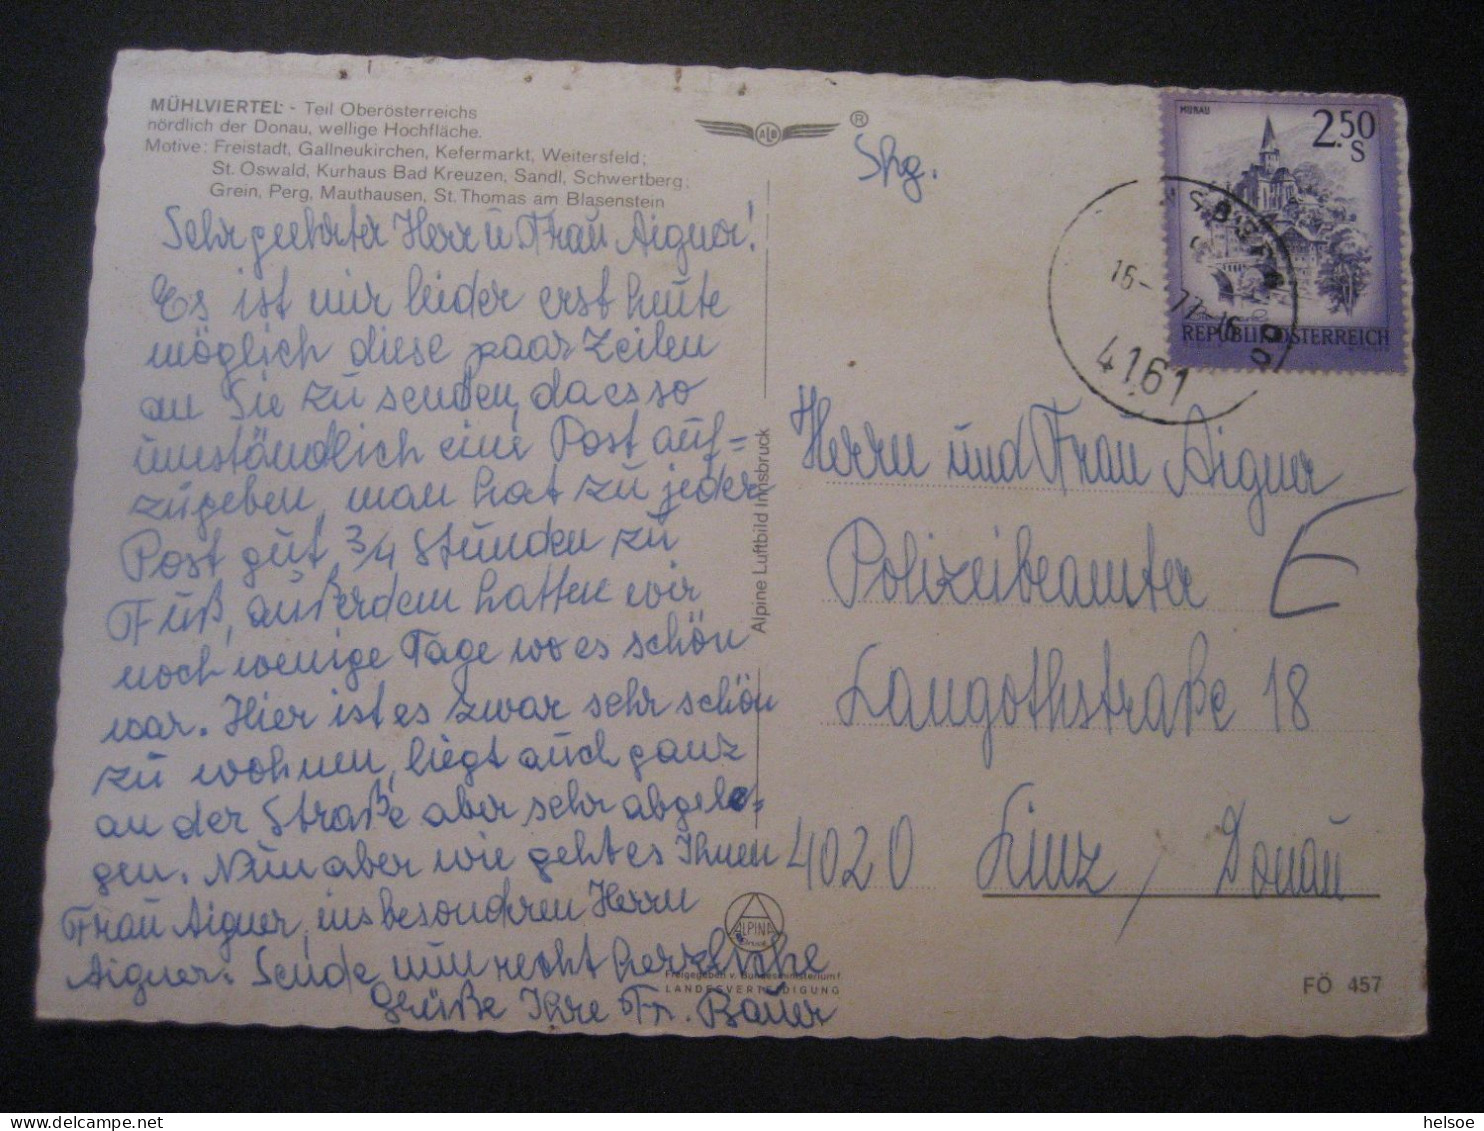 MÜHLVIERTEL - Teil Oberösterreichs
nördlich der Donau, wellige Hochfläche.
Motive: Freistadt, Gallneukirchen, Kefermarkt, Weitersfeld;
St. Oswald, Kurhaus Bad Kreuzen, Sandl, Schwertberg;
Grein, Perg, Mauthausen, St. Thomas am Blasenstein
Sehr geehrter Herr u Frau Aigner!
Es ist mir leider erst heute
möglich diese paar Zeilen
an Sie zu senden, da es so
umständlich eine Post auf=
zugeben, man hat zu jeder
Post gut 3/4 Stunden zu
Fuß, außerdem hatten wir
noch wenige Tage wo es schön
war. Hier ist es zwar sehr schön
zu wohnen, liegt auch ganz
an der Straße aber sehr abgele=
gen. Nun aber wie geht es Ihnen
Frau Aigner, insbesonderen Herrn
Aigner. Sende nun recht herzliche
Grüße Ihre Fr. Bauer
Alpine Luftbild Innsbruck
ALPINA
Druck
Freigegeben v. Bundesministerium f
LANDESVERTEIDIGUNG
ALB
®
Shg.
MURAU
2.50
S
REPUBLIK ÖSTERREICH
16- 77-16
4161
Herrn und Frau Aigner
Polizeibeamter
E
Langothstraße 18
4020 Linz / Donau
FÖ 457
helsoe - delcampe.net